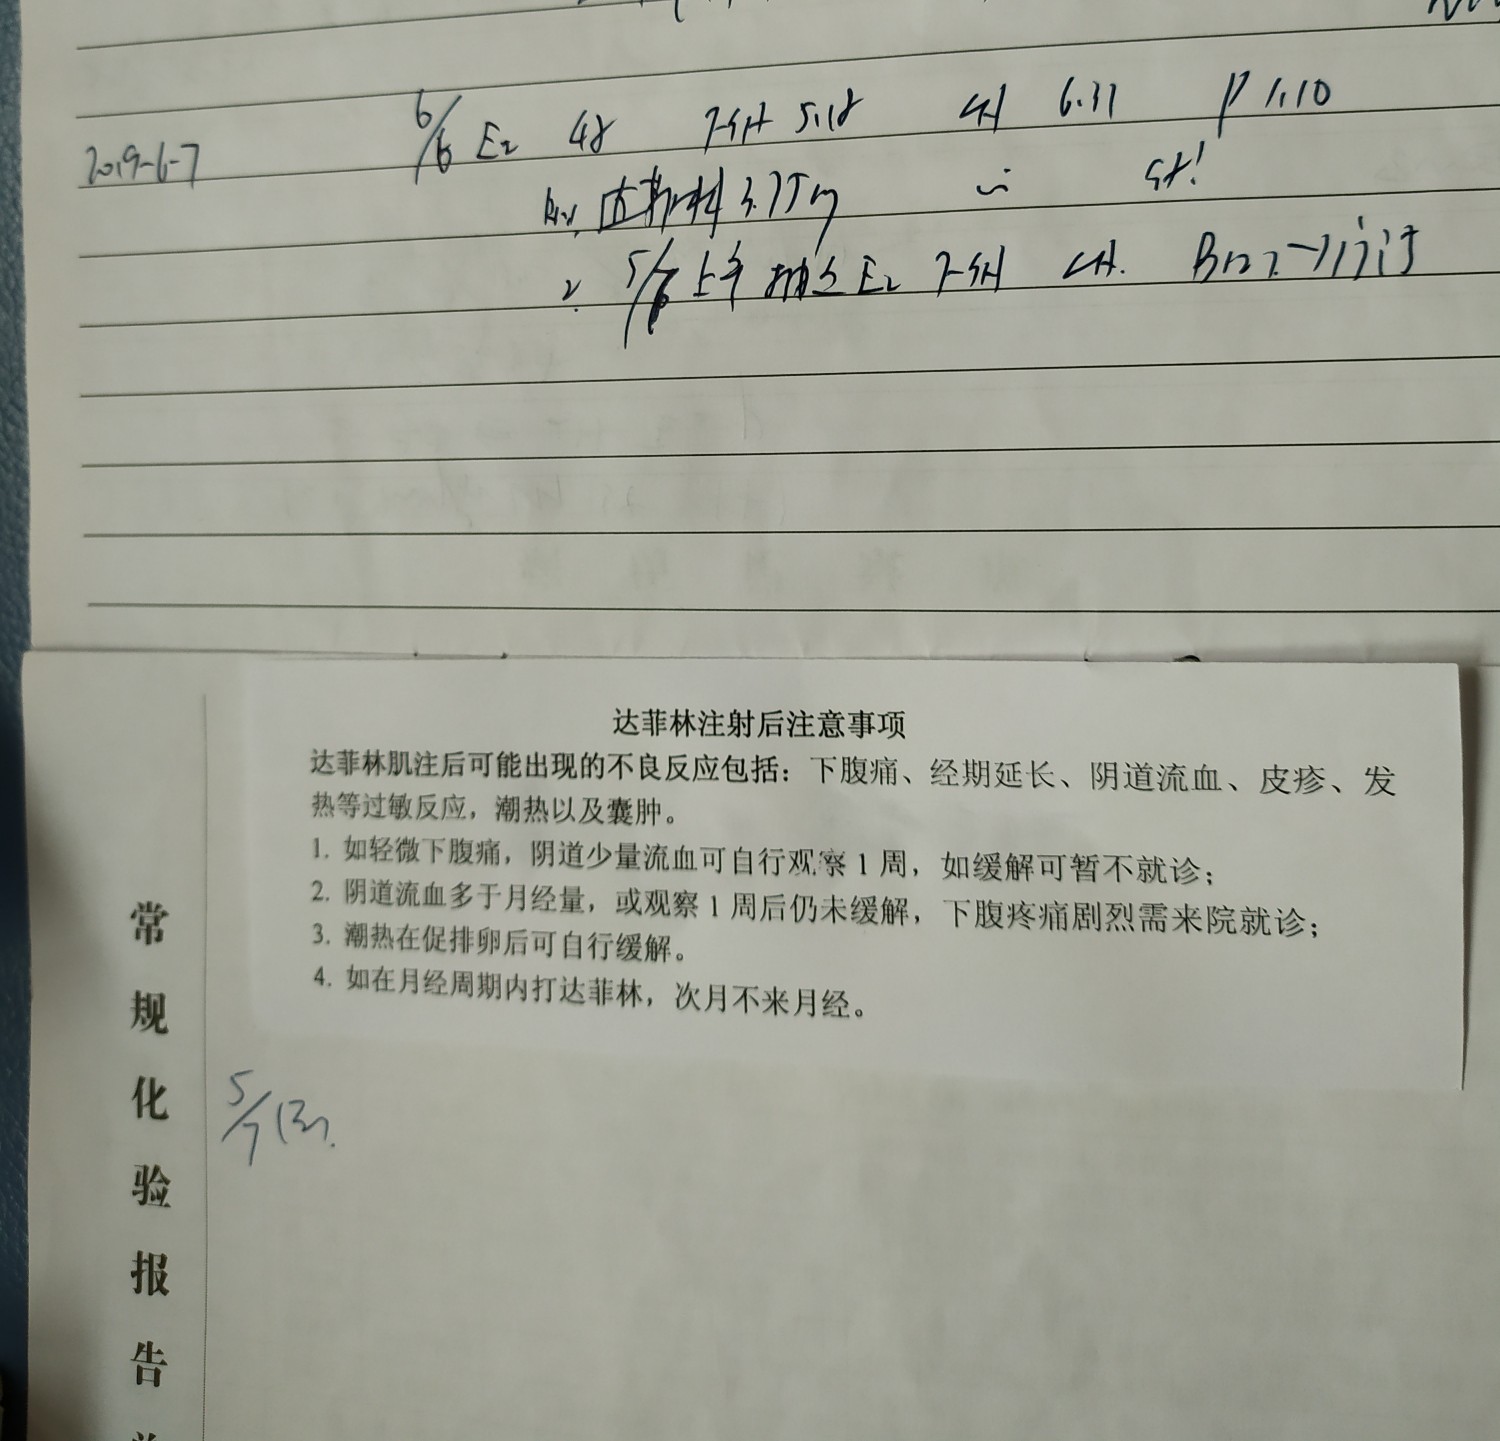 2019-6-7
6/6 E₂ 48 FSH 5.18 LH 6.31 P 1.10
达菲林 3.75mg im st!
2. 5/7 上午抽血 E₂ FSH LH. B超
达菲林注射后注意事项
达菲林肌注后可能出现的不良反应包括：下腹痛、经期延长、阴道流血、皮疹、发
热等过敏反应，潮热以及囊肿。
1. 如轻微下腹痛，阴道少量流血可自行观察 1 周，如缓解可暂不就诊；
2. 阴道流血多于月经量，或观察 1 周后仍未缓解，下腹疼痛剧烈需来院就诊；
3. 潮热在促排卵后可自行缓解。
4. 如在月经周期内打达菲林，次月不来月经。
常规化验报告
5/7